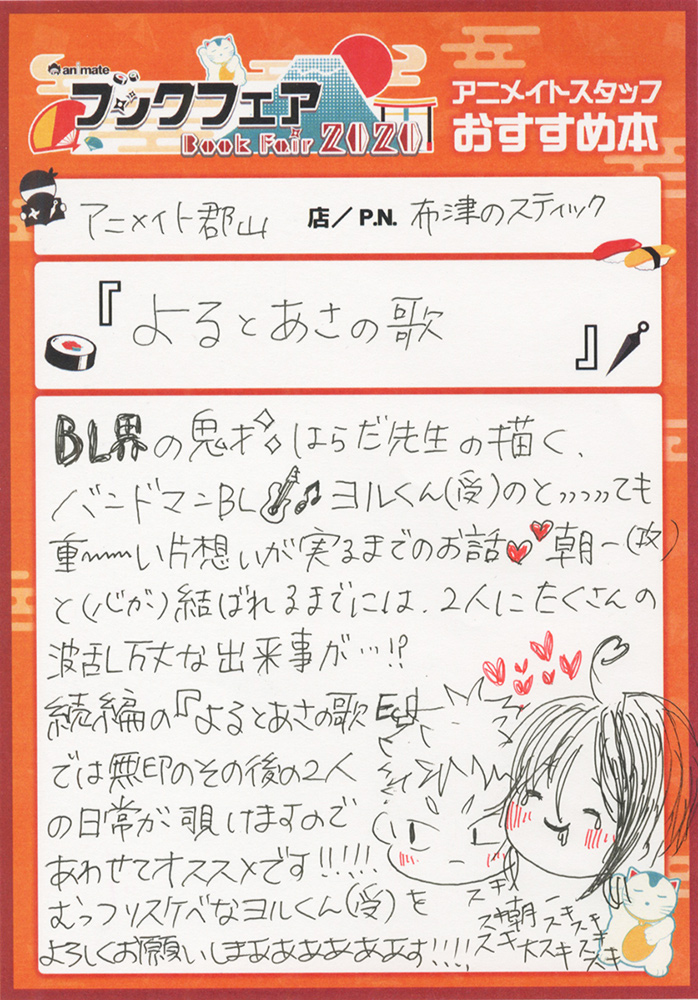 animate
ブックフェア
Book Fair 2020
アニメイトスタッフ
おすすめ本
アニメイト郡山 店/P.N. 布津のスティック
『よるとあさの歌』
BL界の鬼才はらだ先生の描く、
バンドマンBL ヨルくん(受)のとっっっっても
重〰い片想いが実るまでのお話 朝一(攻)
と(心が)結ばれるまでには、2人にたくさんの
波乱万丈な出来事が…!?
続編の『よるとあさの歌 Ed』
では無印のその後の2人
の日常が覗けますので
あわせてオススメです!!!!!
むっつりスケベなヨルくん(受)を
よろしくお願いしまああああああす!!!!
スキ
スキ朝一スキスキ
スキ大スキスキスキ